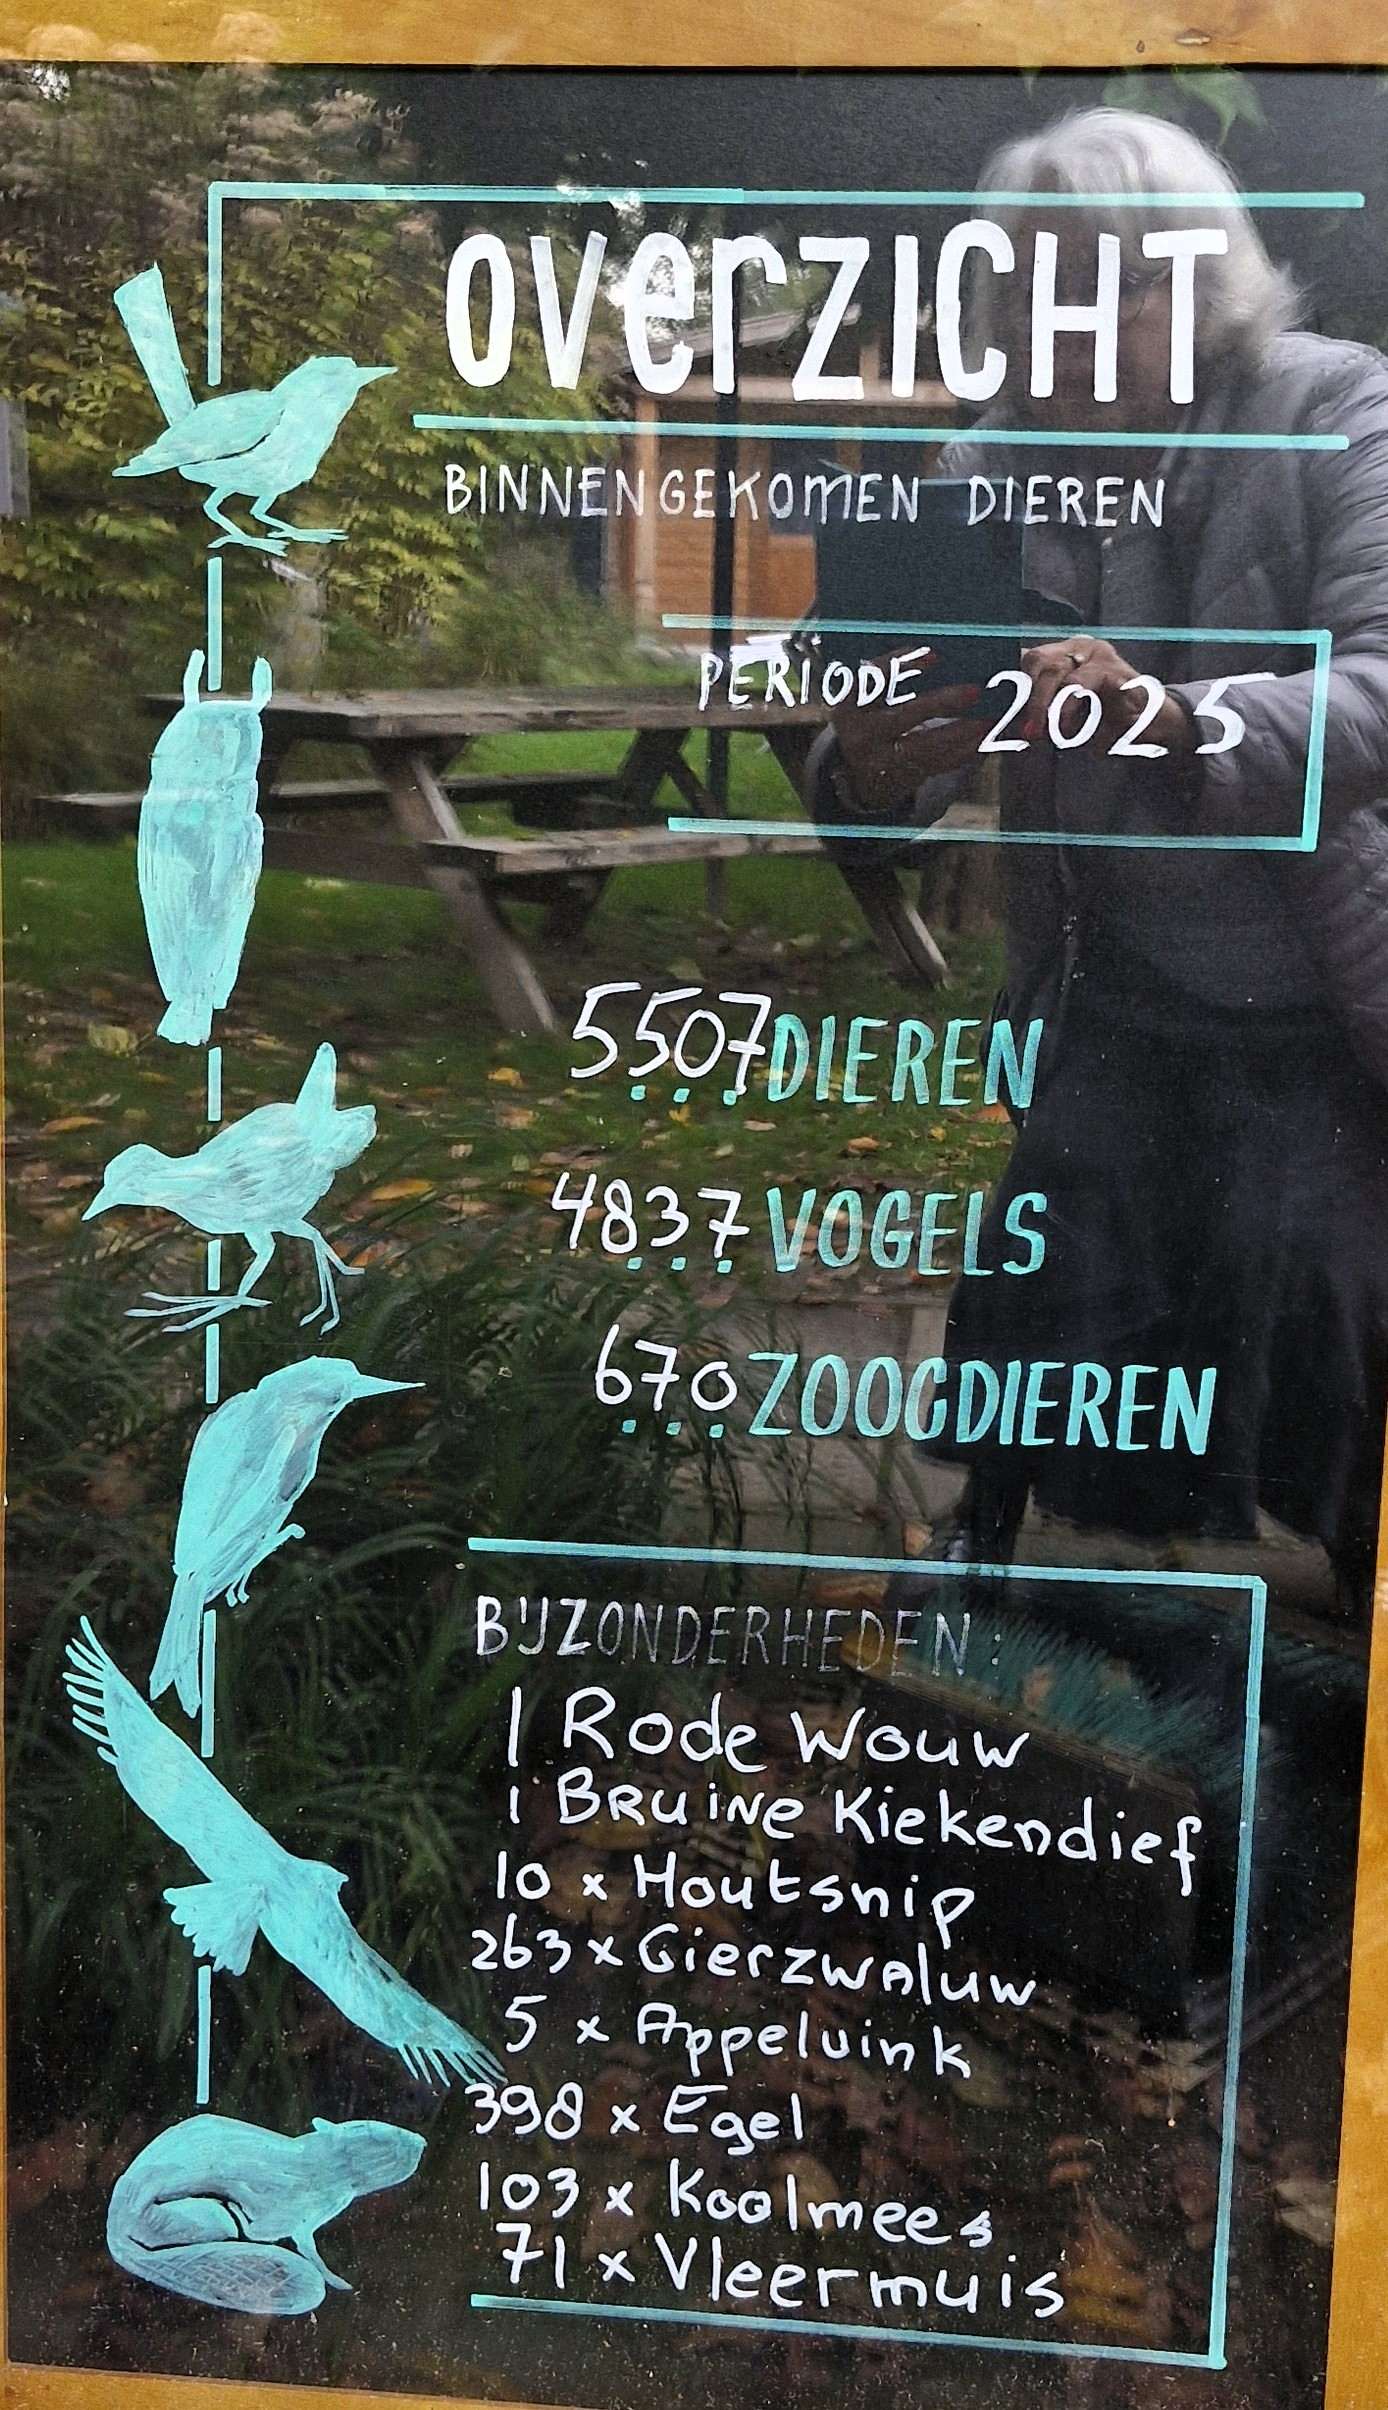 overZICHT
BINNENGEKOMEN DIEREN
PERIODE 2025
5507 DIEREN
4837 VOGELS
670 ZOOGDIEREN
BIJZONDERHEDEN:
1 Rode Wouw
1 BRuiNe Kiekendief
10 x Houtsnip
263 x Gierzwaluw
5 x Appelvink
398 x Egel
103 x Koolmees
71 x Vleermuis